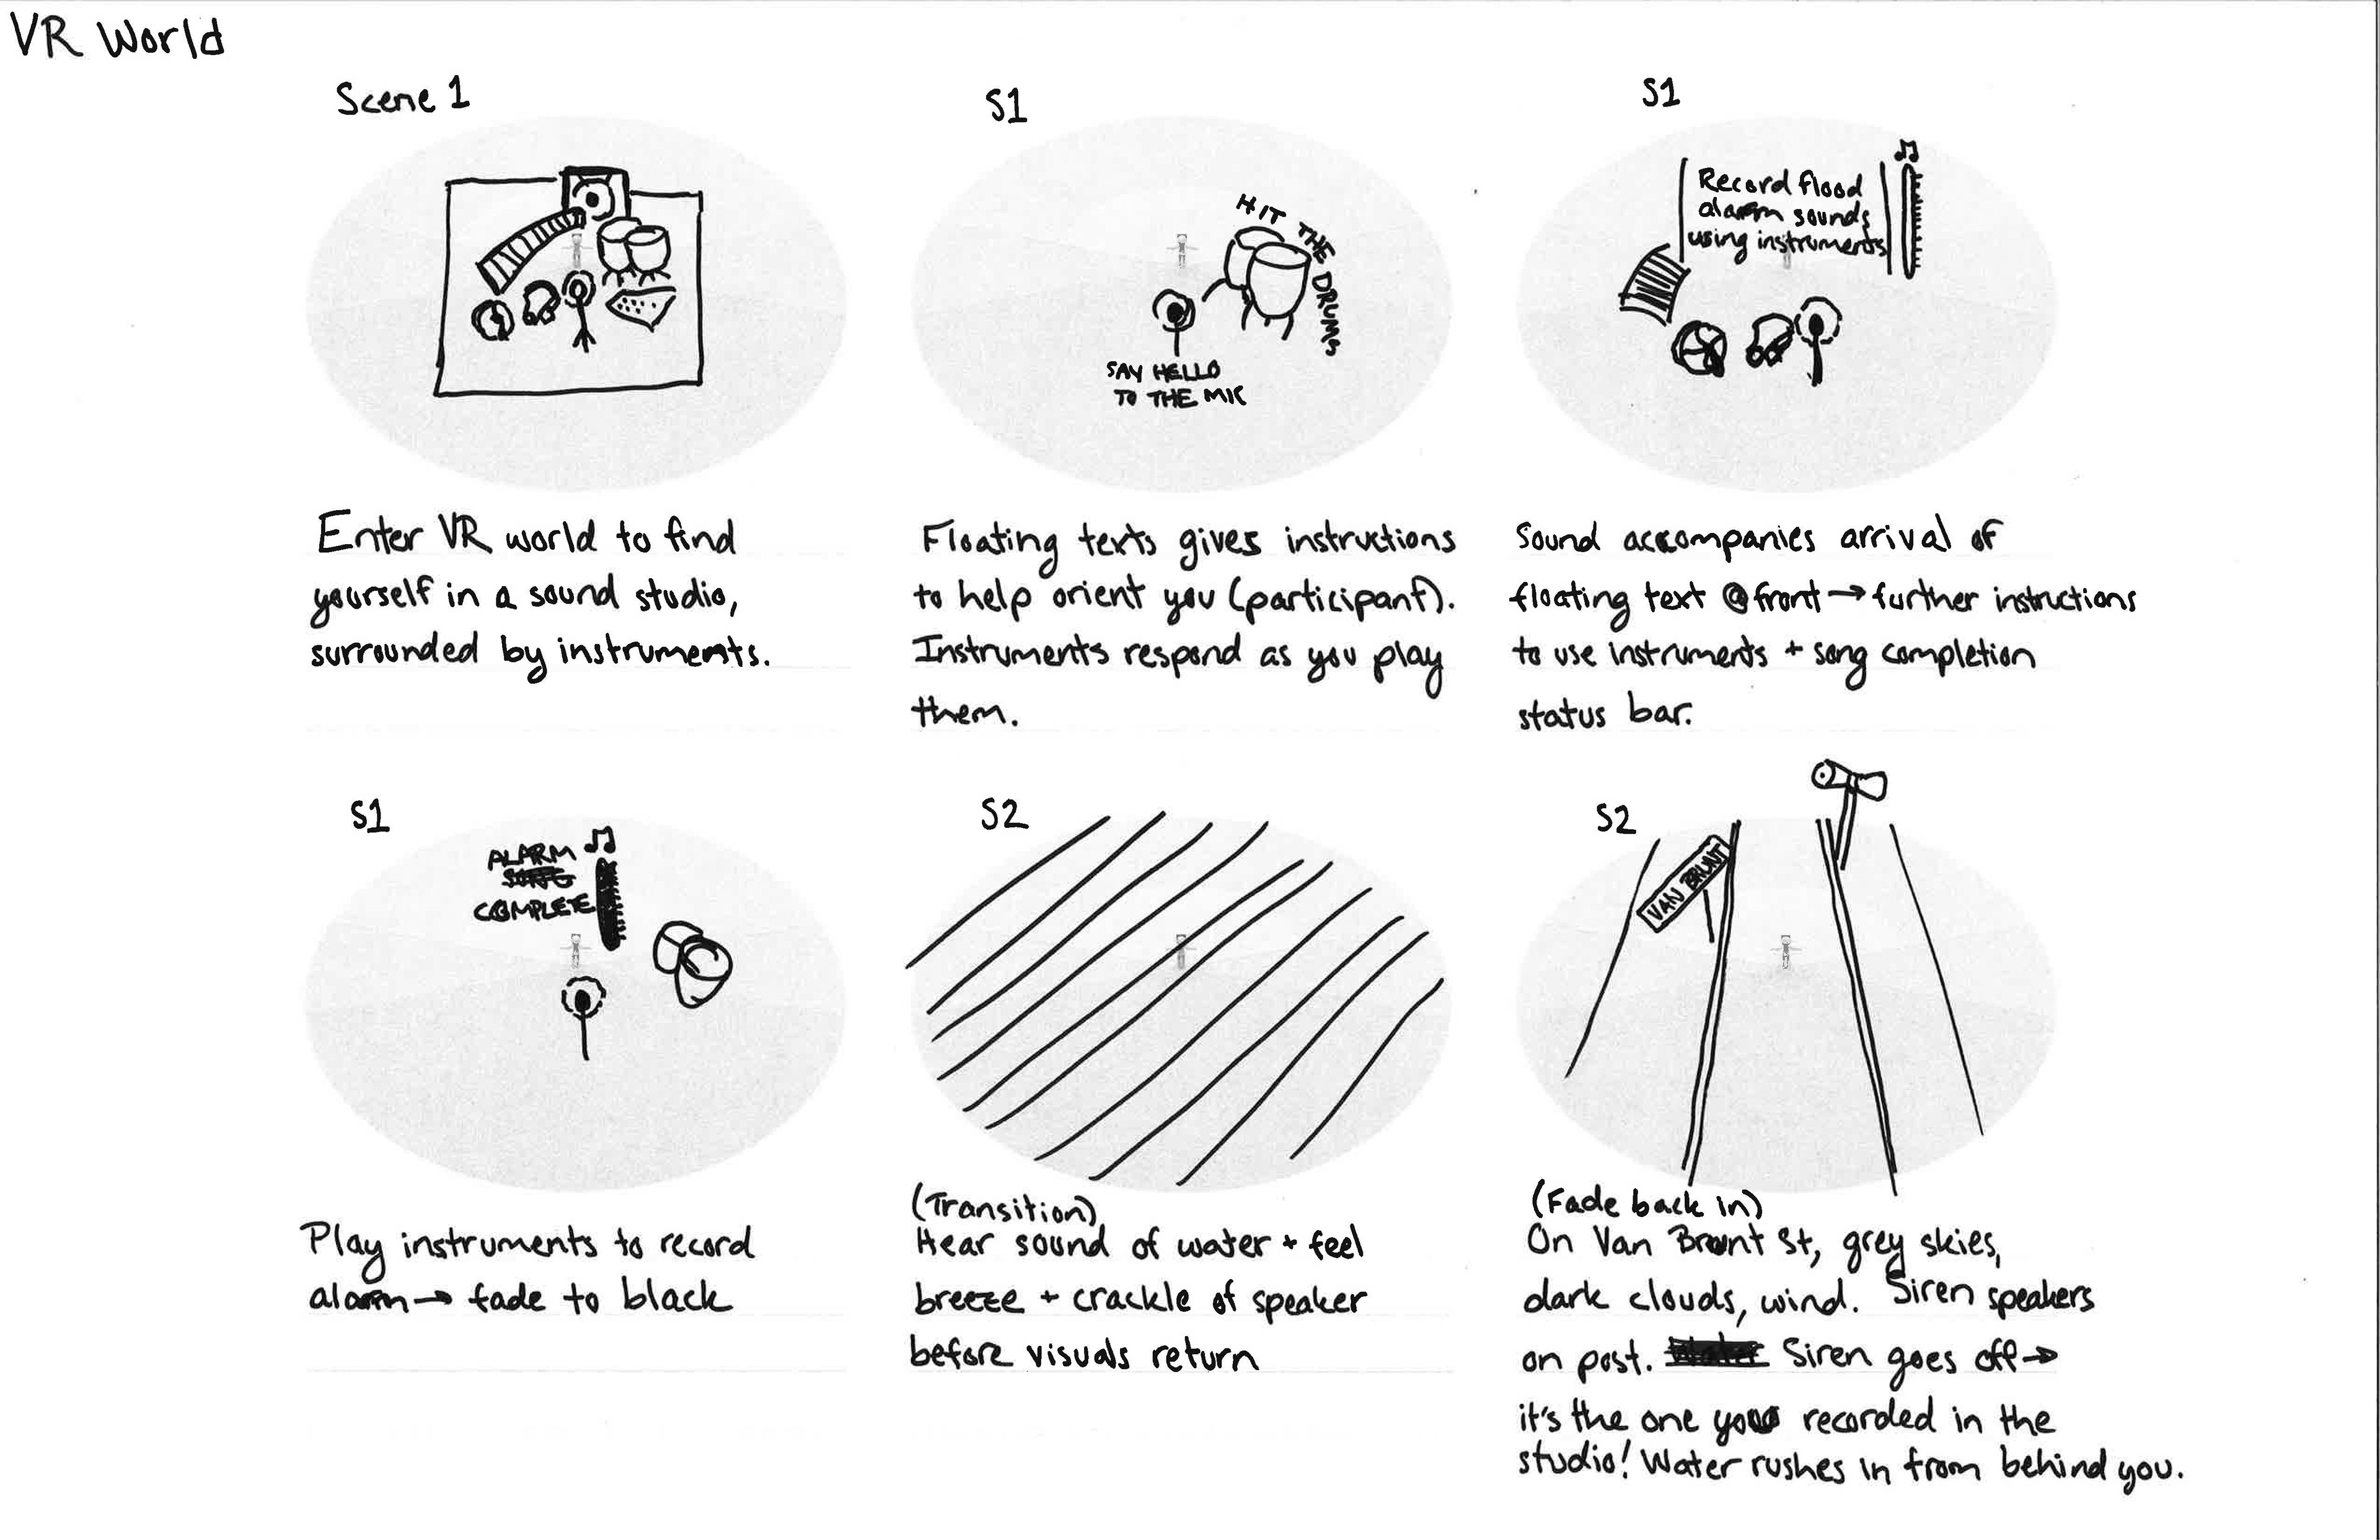 VR World
Scene 1
Enter VR world to find
yourself in a sound studio,
surrounded by instruments.
S1
HIT THE DRUMS
SAY HELLO
TO THE MIC
Floating texts gives instructions
to help orient you (participant).
Instruments respond as you play
them.
S1
Record flood
alarm sounds
using instruments
Sound accompanies arrival of
floating text @ front → further instructions
to use instruments + song completion
status bar.
S1
ALARM
COMPLETE
Play instruments to record
alarm → fade to black
S2
(Transition)
Hear sound of water + feel
breeze + crackle of speaker
before visuals return
S2
VAN BRUNT
(Fade back in)
On Van Brunt St, grey skies,
dark clouds, wind. Siren speakers
on post. Siren goes off →
it's the one you recorded in the
studio! Water rushes in from behind you.